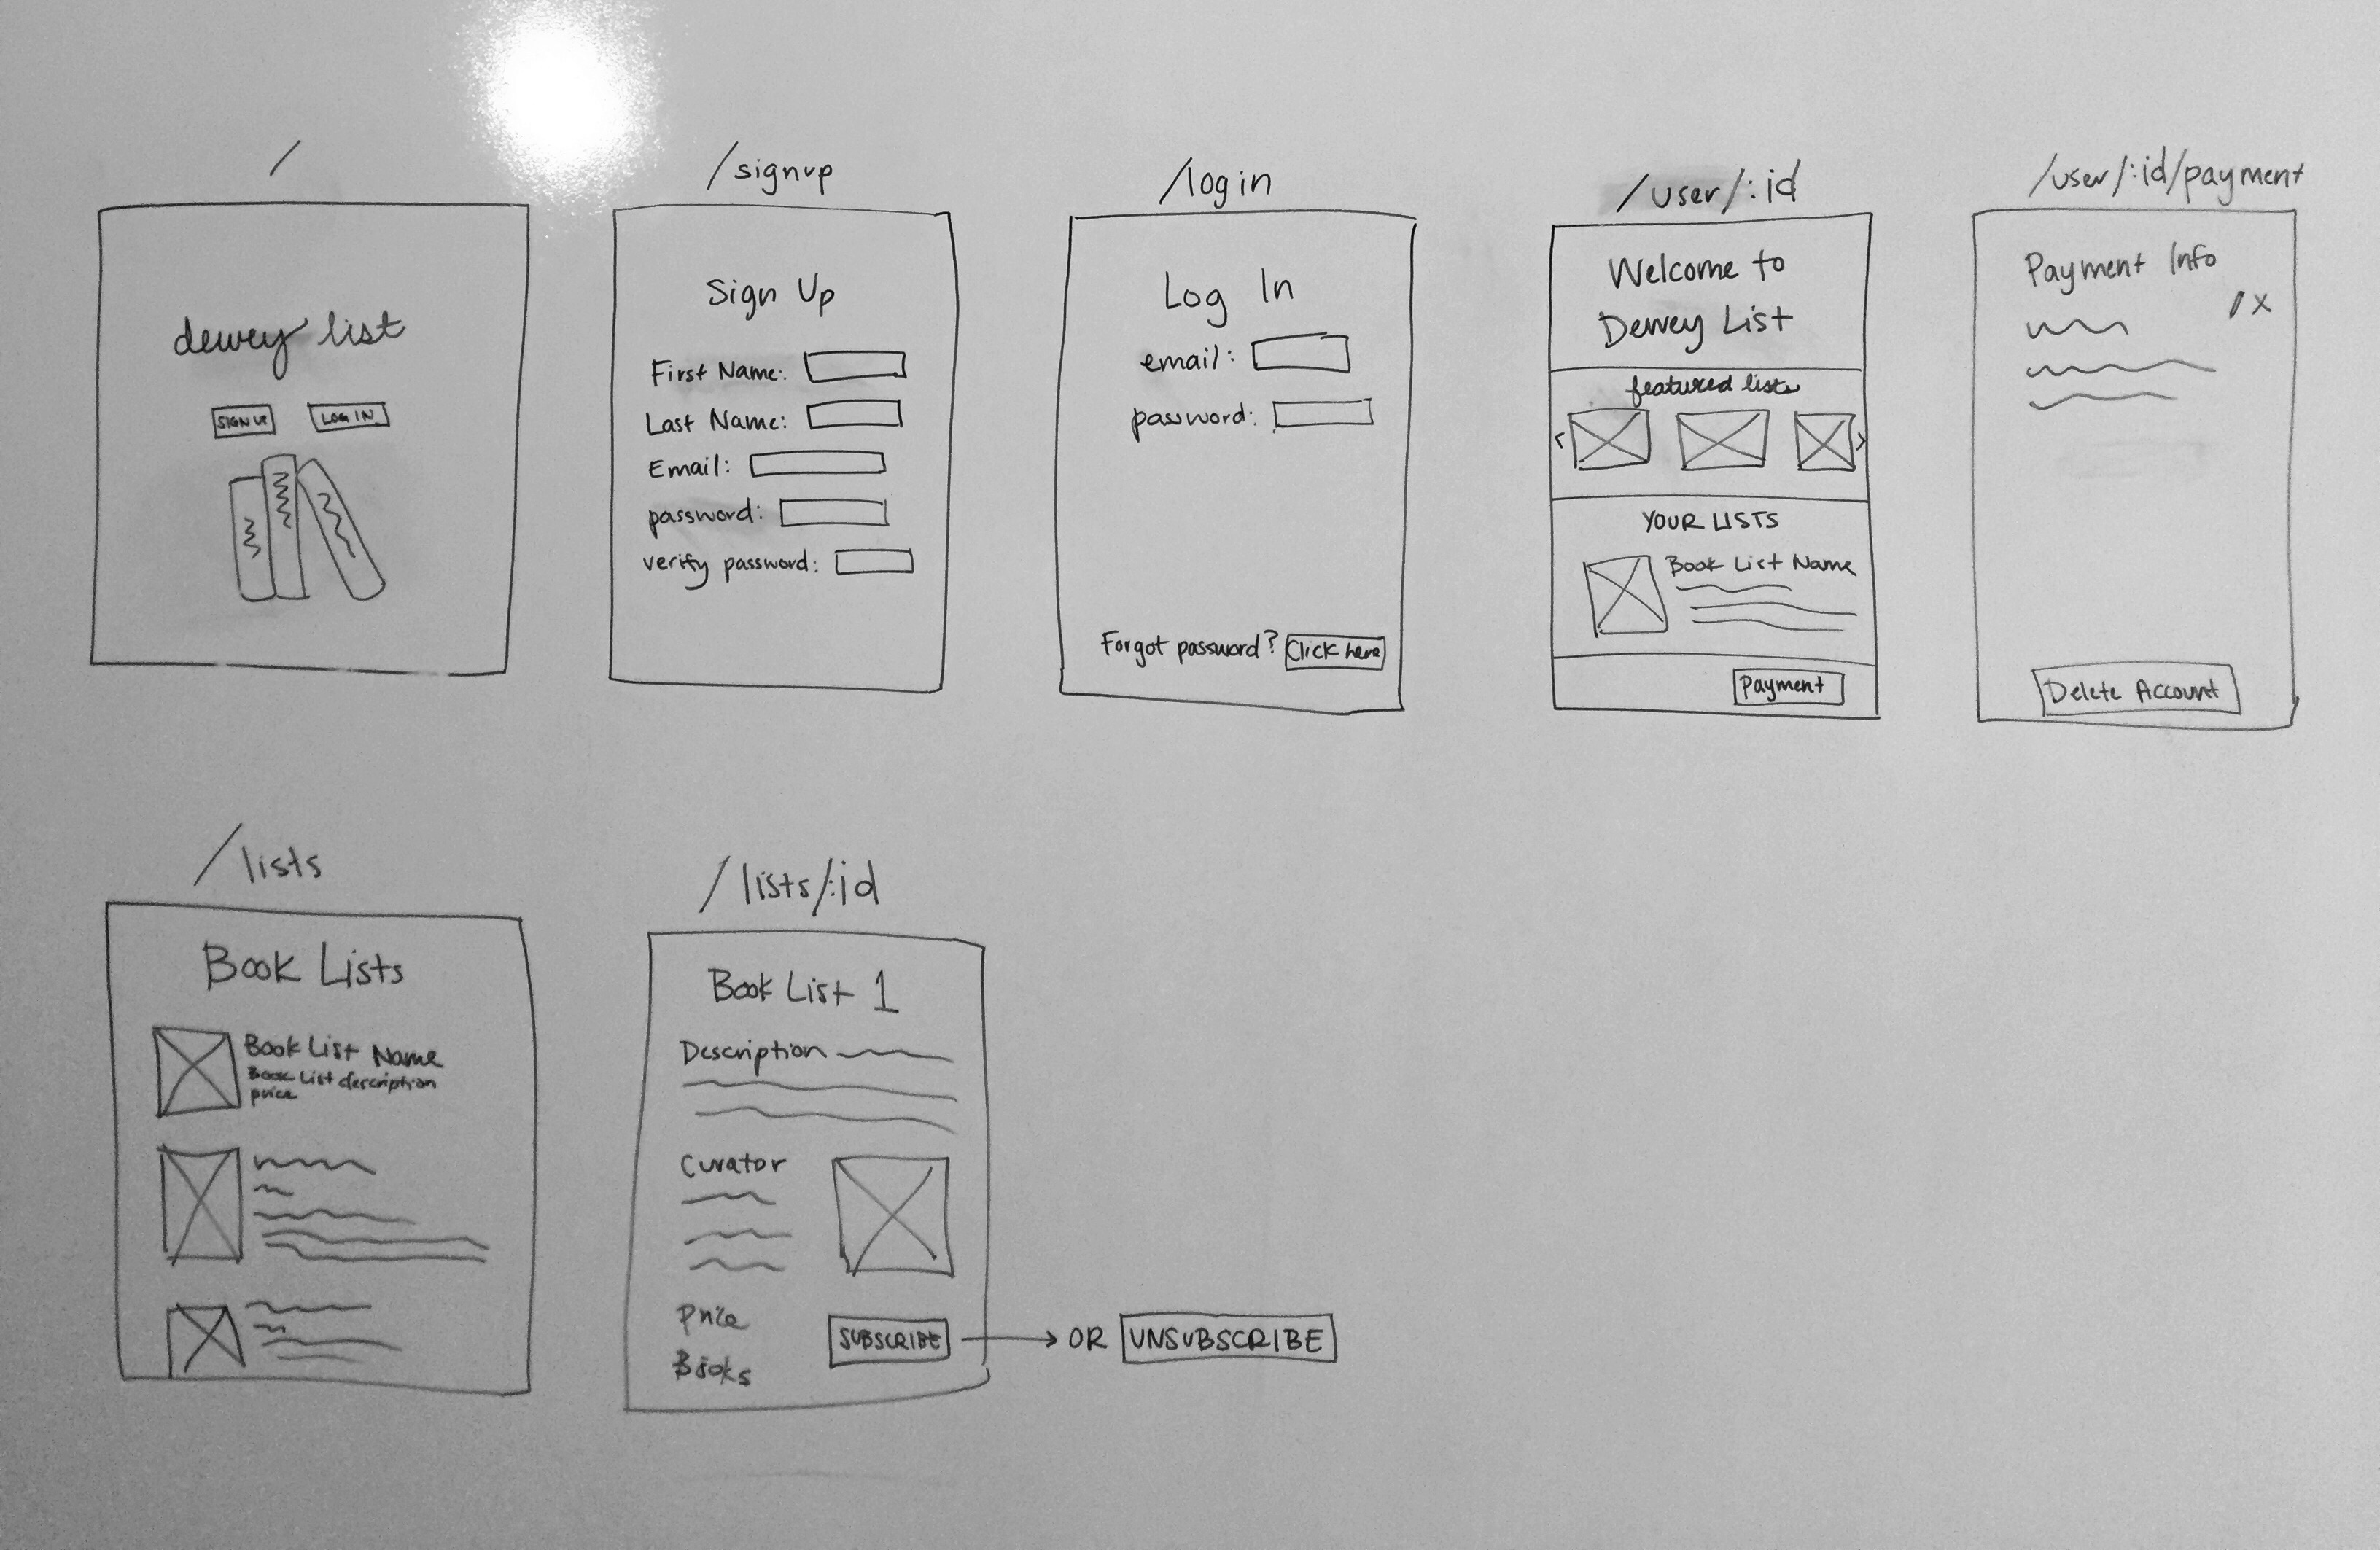 /
dewey list
SIGN UP LOG IN
/signup
Sign Up
First Name:
Last Name:
Email:
password:
verify password:
/login
Log In
email:
password:
Forgot password? Click here
/user/:id
Welcome to
Dewey List
featured lists
< >
YOUR LISTS
Book List Name
Payment
/user/:id/payment
Payment Info
X
Delete Account
/lists
Book Lists
Book List Name
Book List description
price
/lists/:id
Book List 1
Description
Curator
Price
SUBSCRIBE → OR UNSUBSCRIBE
Books